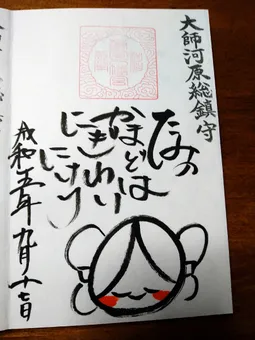 大師河原総鎮守
たみの
かまどは
にぎわい
にけり
令和五年九月十七日